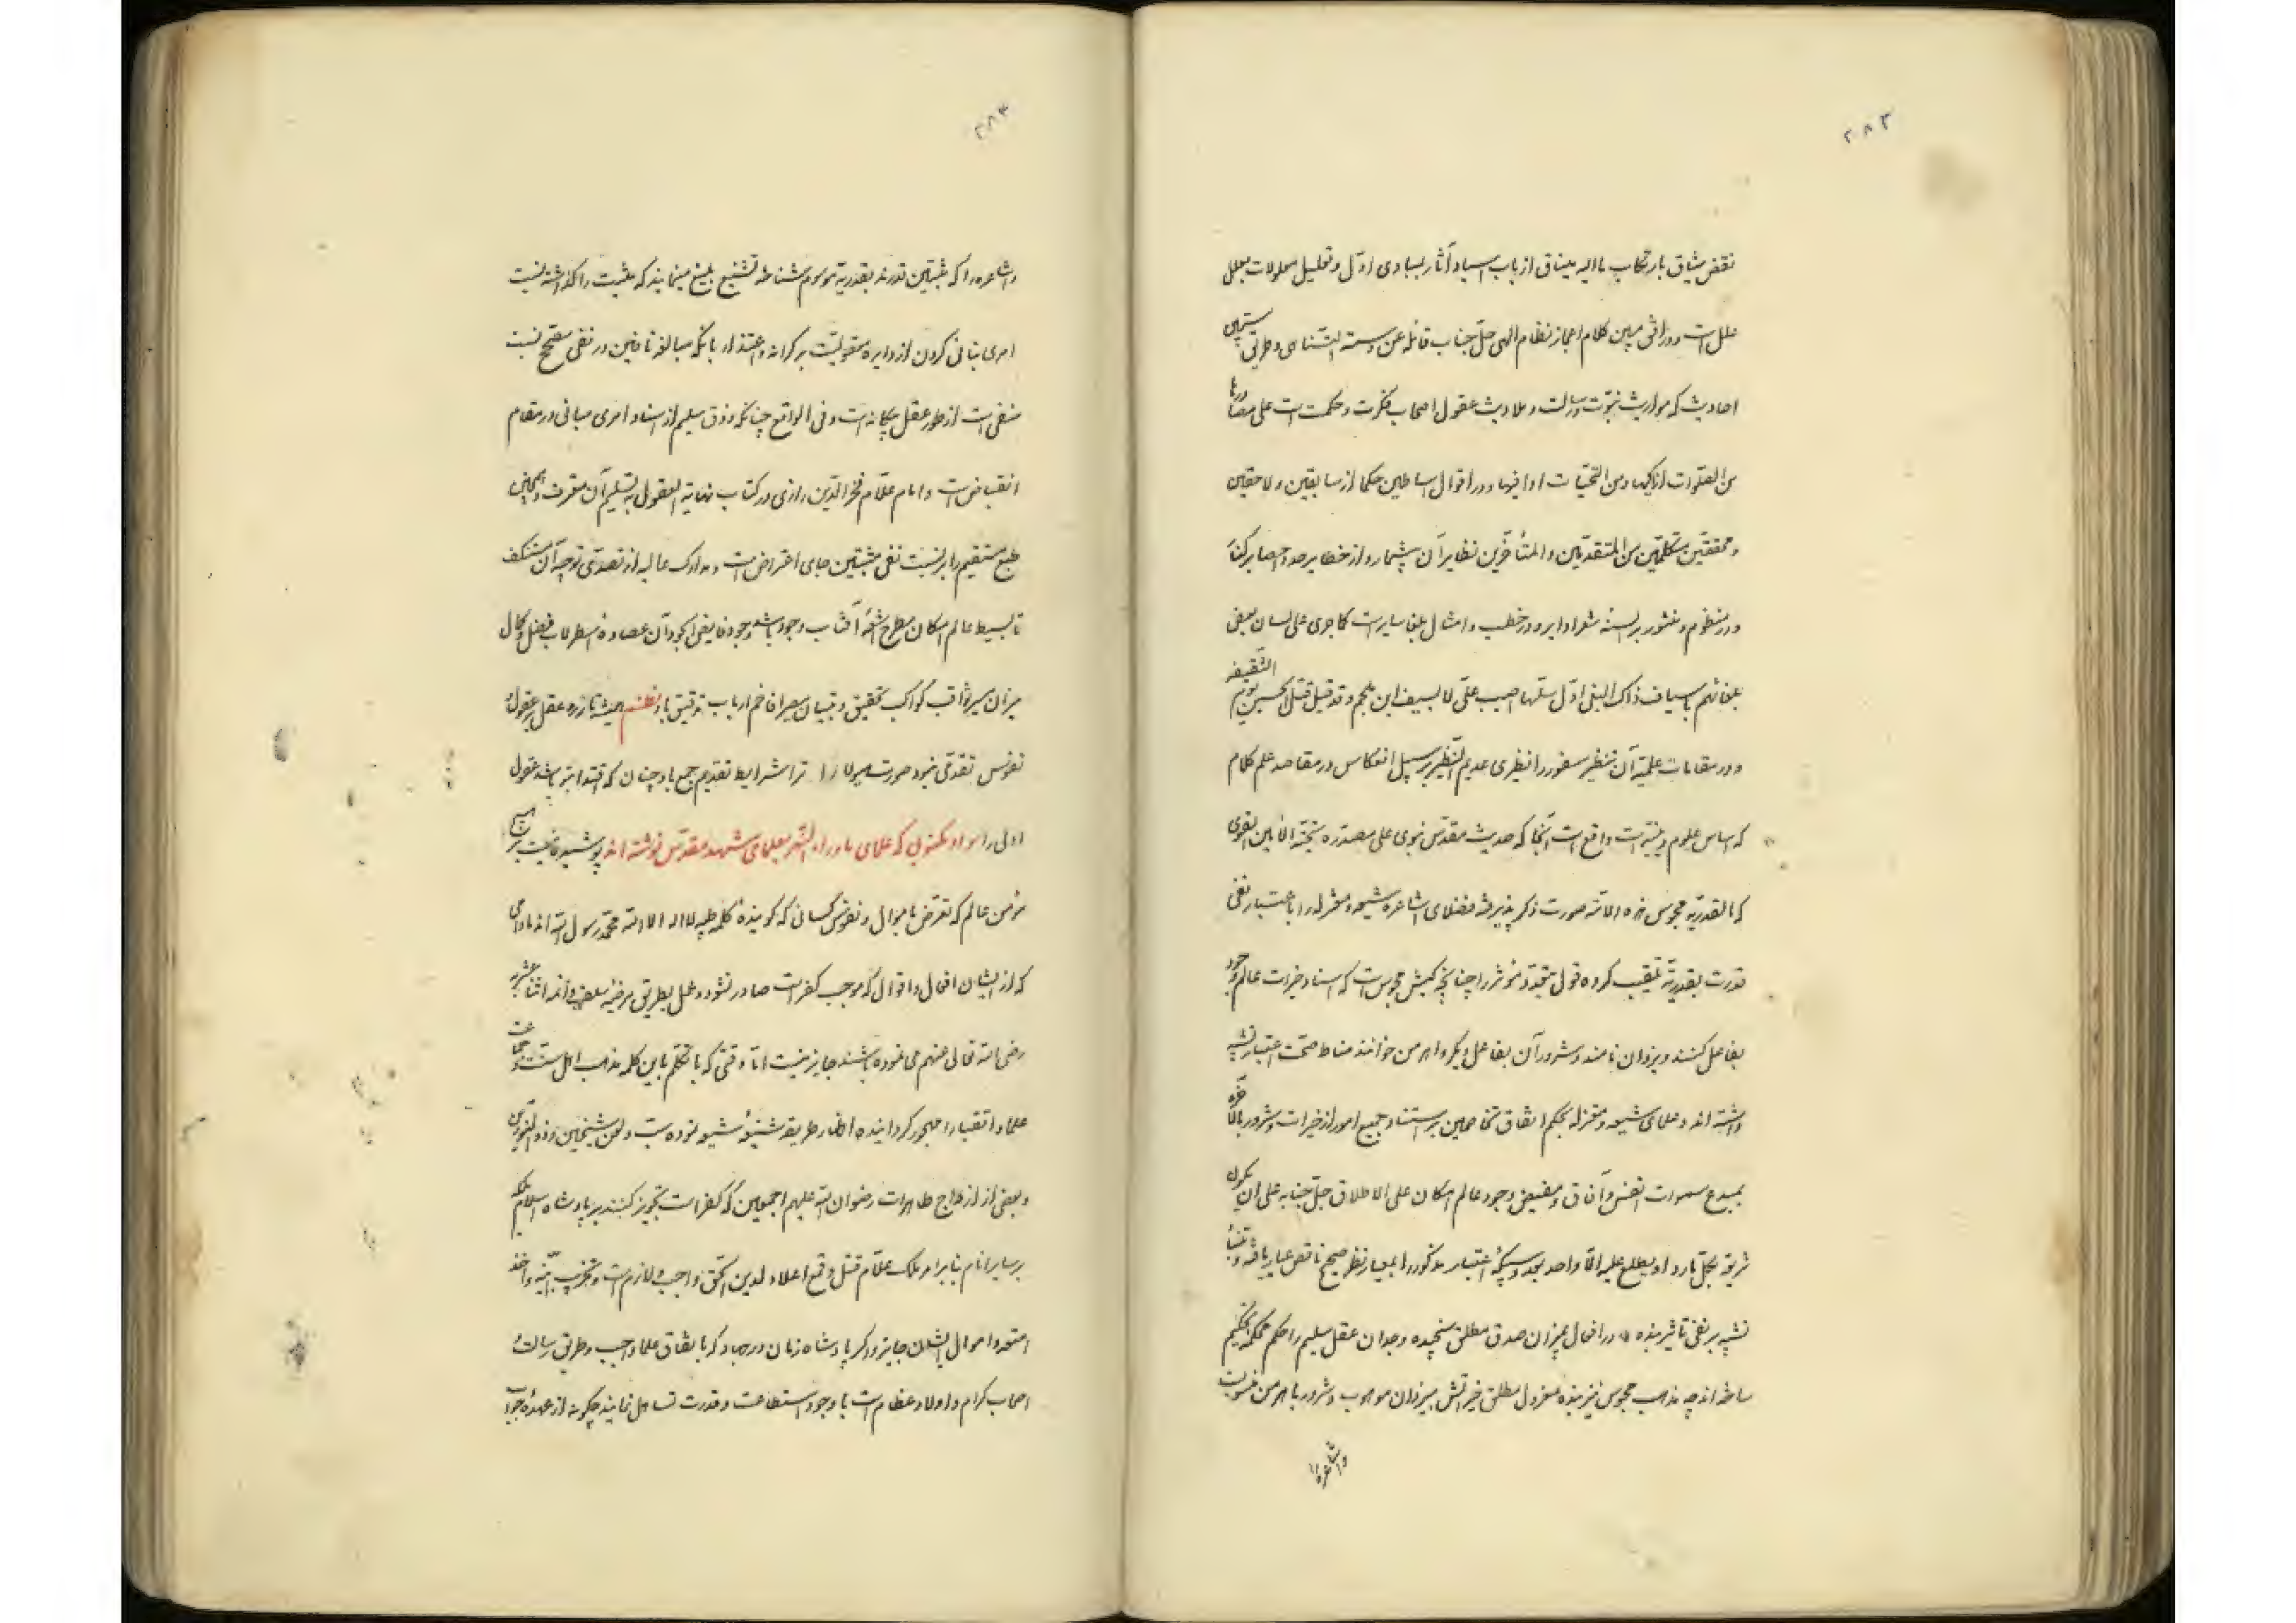 ۲۸۳
نقض میثاق بارتکاب ماالیه یساق از باب اسناد آثار بمبادی اول و تعلیل معلولات بعلل
علل است و در کلام اعجاز نظام الهی جل جناب قائله عن وسمة التناهی و طرق
احادیث که مواریث نبوت و رسالت و ملاویث عقول اصحاب فکرت و حکمت است علی مصادرها
من الصلوات ازاکیها و من التحیات اوافیها و در اقوال اساطین حکما از سابقین و لاحقین
و محققین متکلمین من المتقدمین و المتأخرین نظایر آن بیشمار و از خطا بر حد و احصا بر کنار
و در منظوم و منثور بر السنه شعرا دایر و در خطب و امثال بلغا سایر است کما جری علی لسان بعض
بلغائهم باسیاف ذاک البغی اول سلها اصیب علی لا بسیف ابن ملجم و قد قیل قتل الحسین یوم السقیفه
و در مقامات علمیه آن نظیری عدیم النظیر بر سبیل انعکاس در مقاصد علم کلام
که اساس علوم دینیه است واقع است آنجا که حدیث مقدس نبوی علی مصدره تحیة
که القدریة مجوس هذه الامة صورت ذکر پذیرفته فضلای اشاعره شیعه و معتزله را باعتبار نفی
قدرت بقدریه تلقیب کرده قول بتعدد مؤثر را چنانچه کیش مجوس است که اسناد خیرات عالم وجود
بفاعل کنند و یزدان نامند و شرور آن بفاعل دیگر و اهرمن خوانند مناط صحت اعتبار تشبیه
داشته‌اند و علمای شیعه و معتزله بحکم اتفاق متخاصمین بر استناد جمیع امور از خیرات و شرور
بمبدع سموات انفس و آفاق و مفیض وجود عالم امکان علی الاطلاق جل جنابه علی ان یکون
شریعة لکل وارد او یطلع علیه الا واحد بعد واحد اعتبار مذکور را بمعیار نظر صحیح ناقص عیار یافته و بنا
تشبیه بر نفی تأثیر بنده در افعال بمیزان صدق مطلق سنجیده وجدان عقل سلیم را حکم محکمه تحکیم
ساخته‌اند چه مذهب مجوس نیز بنده معزول مطلق خیراتش بیزدان موهوب و شرور باهرمن منسوب است
واشاعره
۲۸۴
واشاعره را که مثبتین قدرند بقدریه موسوم شناخته تشنیع بلیغ مینمایند که مثبت را گذاشته نسبت
امری بنافی کردن از دایره معقولیت بر کرانه و اعتذار بانکه مبالغه نافین در نفی مصحح نسبت
منفی است از طور عقل بیگانه است و فی الواقع چنانکه ذوق سلیم از اسناد امری بنافی در مقام
انقباض است و امام علام فخر الدین رازی در کتاب نهایة العقول بتسلیم آن معترف و همچنین
طبع مستقیم را بر نسبت نفی بمثبتین جای اعتراض است و مدارک عالیه از تصدی توجیه آن مستنکف
تا بسیط عالم امکان مطرح اشعه آفتاب وجود باشد وجود فایض الجود آن عضاده اسطرلاب فضل و کمال
میزان سیر ثواقب کواکب تحقیق و تبیان افاخم ارباب تدقیق باد نظم همیشه تا زره عقل بر عقول
نفوس تقدمی نبود صورت هیولا را ترا شرایط تقدیم جمع باد چنان که اقتدا بتو باشد عقول
اولی را سواد مکتوبی که علمای ماوراء النهر بعلمای مشهد مقدس نوشته‌اند پوشیده نیست بر هیچ
مؤمن عالم که تعرض باموال و نفوس کسانی که گوینده کلمه طیبه لا اله الا الله محمد رسول الله اند مادامی
که از ایشان افعال و اقوال که موجب کفر است صادر نشود و عمل بطریق مرضیه سلف و ائمه اثنا عشریه
رضی الله تعالی عنهم می نموده باشند جایز نیست اما وقتی که با تکلم باین کلمه مذهب اهل سنت و جماعت
علماء اتقیا را مهجور گردانیده اظهار طریقه شنیعه شیعه نموده سب و لعن شیخین و ذوالنورین
و بعضی از ازواج طاهرات رضوان الله علیهم اجمعین که کفر است تجویز کنند بر پادشاه اسلام بلکه
بر سایر انام بنابر امر ملک علام قتل و قمع اعلاء لدین الحق واجب و لازم است و تخریب ابنیه و اخذ
امتعه و اموال ایشان جایز و اگر پادشاه زمان در جهاد که باتفاق علماء واجب و طریق رسالت
اصحاب کرام و اولاد عظام است با وجود استطاعت و قدرت تساهل نمایند چگونه از عهده جواب